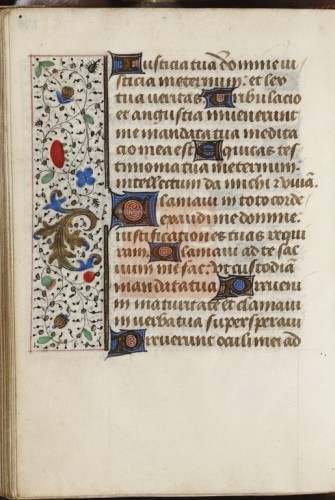 Iusticia tua domine iu
sticia in eternum: et lex
tua veritas Tribulacio
et angustia inuenerunt
me mandata tua medita
cio mea est Equitas tes
timonia tua in eternum in
tellectum da michi et viuā.
Clamaui in toto corde
exaudi me domine.
iustificationes tuas requi
ram Clamaui ad te sac
uum me fac: vt custodia
mandata tua Preueni
in maturitate et clamaui
in verba tua supersperaui
Preuerunt oculi mei ad